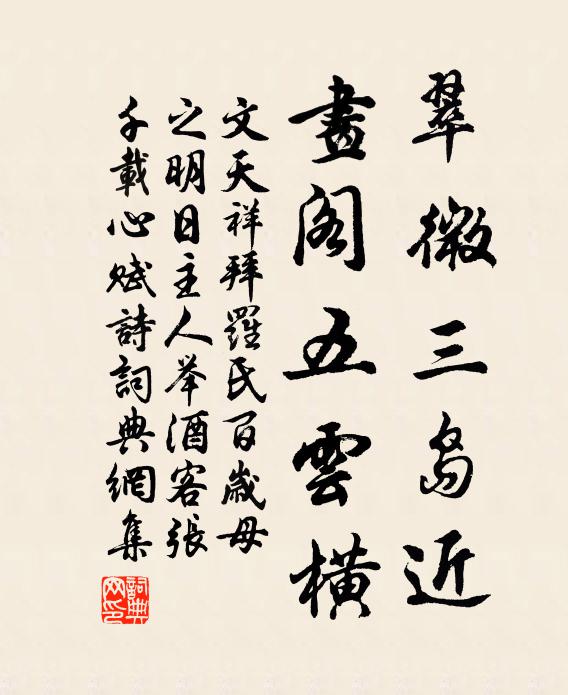 翠微三島近
畫閣五雲橫
文天祥拜羅氏百歲母
之明日主人举酒客張
千載心賦詩詞典網集
詞典
网印